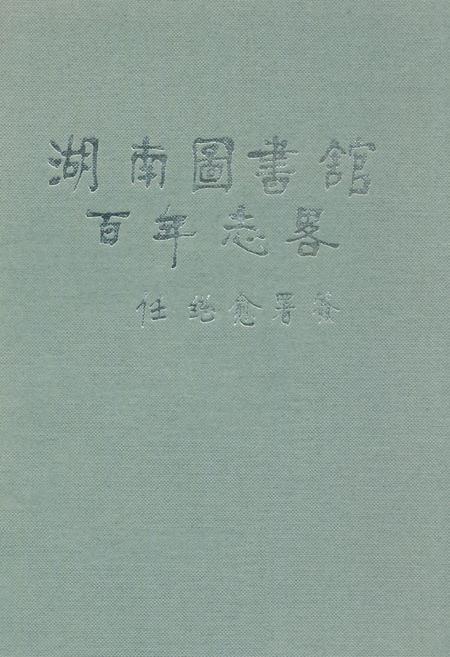 湖南圖書館
百年志畧
任继愈署簽